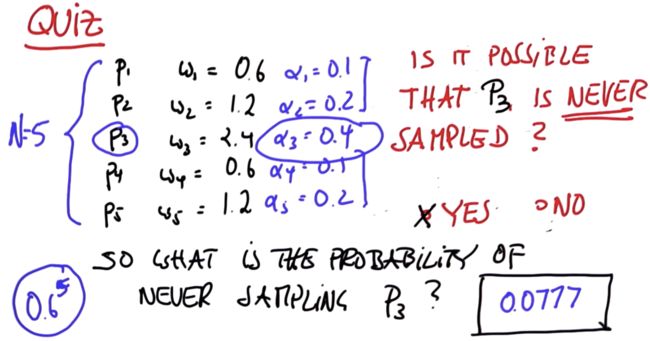 QUIZ
N=5
p1 ω1 = 0.6 α1=0.1
p2 ω2 = 1.2 α2=0.2
p3 ω3 = 2.4 α3=0.4
p4 ω4 = 0.6 α4=0.1
p5 ω5 = 1.2 α5=0.2
IS IT POSSIBLE
THAT P3 IS NEVER
SAMPLED?
X YES O NO
SO WHAT IS THE PROBABILITY OF
NEVER SAMPLING P3?
0.6^5
0.0777